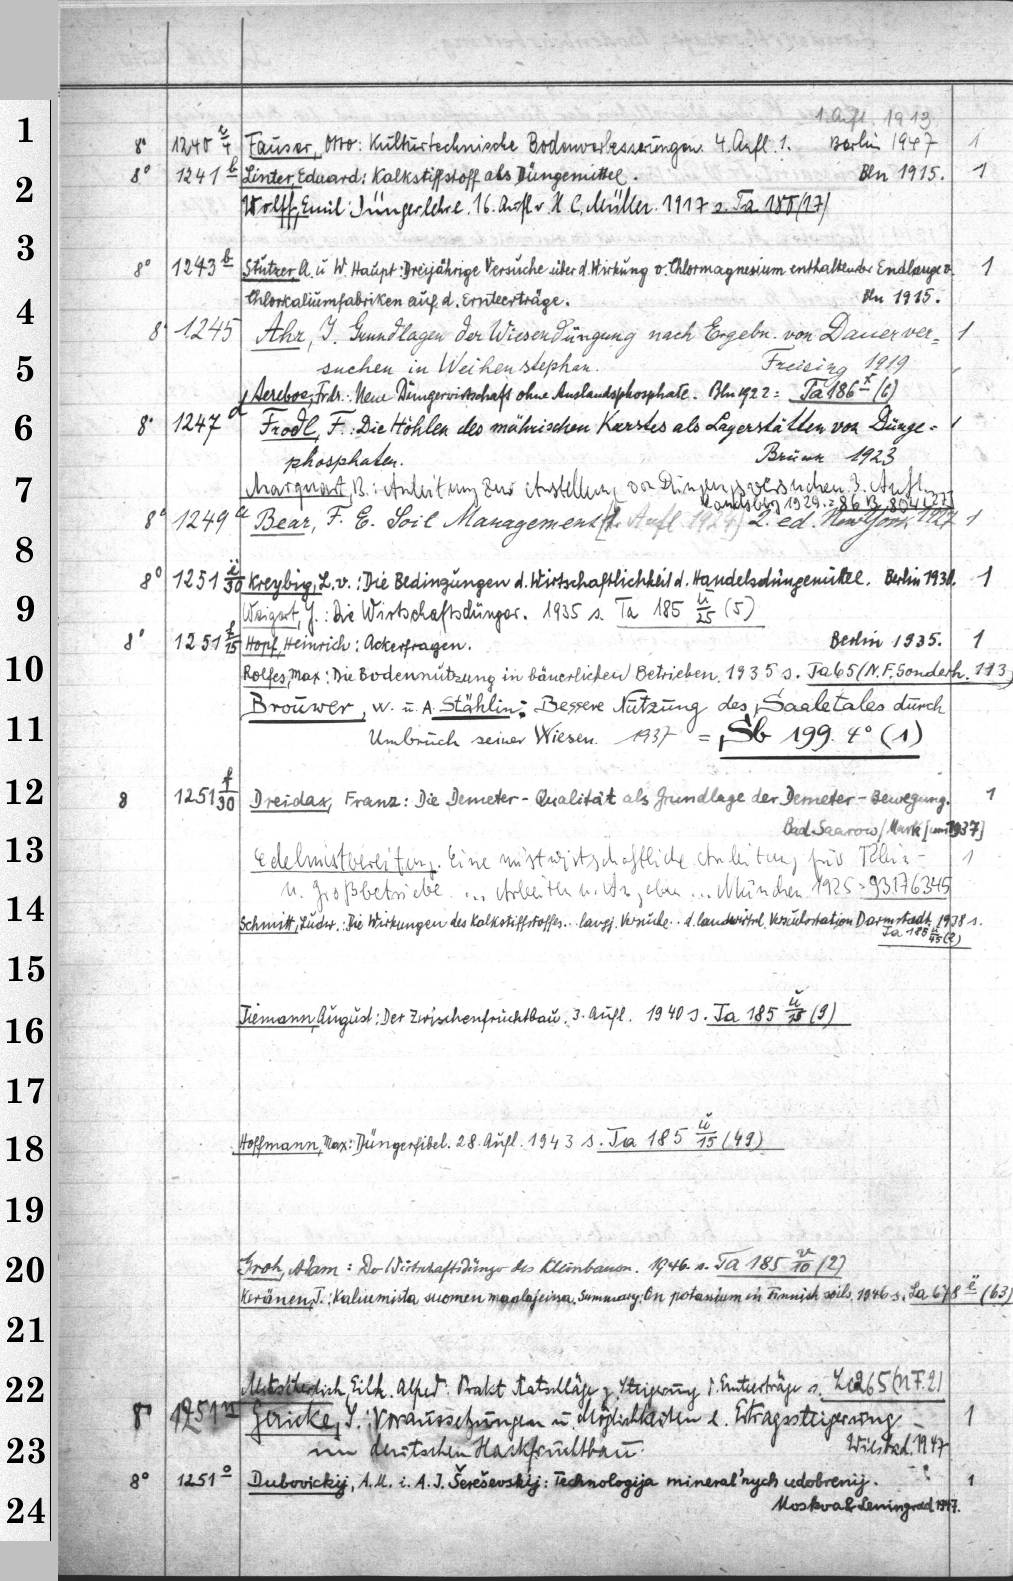 1. Aufl. 1913.
1 8° 1240 Fauser, Otto: Kulturtechnische Bodenverbesserungen. 4. Aufl. 1. Berlin 1947 1
8° 1241 b Linter, Eduard: Kalkstiffstoff als Düngemittel. Bln 1915. 1
2 Wolff, Emil: Düngerlehre. 16. Aufl. v. H. C. Müller. 1917 s. Ta 188 (17)
3 8° 1243 b Stutzer, A. u. W. Haupt: Dreijährige Versuche über d. Wirkung v. Chlormagnesium enthaltender Endlauge v. 1
4 Chlorkaliumfabriken auf d. Ernteerträge. Bln 1915.
8° 1245 Ahr, J. Grundlagen der Wiesendüngung nach Ergebn. von Dauerver= 1
5 suchen in Weihenstephan. Freising 1919
Aereboe, Frdr.: Neue Düngerwirtschaft ohne Auslandsphosphate. Bln 1922 = Ta 186 (6)
6 8° 1247 d Frodl, F.: Die Höhlen des mährischen Karstes als Lagerstätten von Dünge= 1
phosphaten. Brünn 1923
7 Marquart, B.: Anleitung zur Anstellung von Düngungsversuchen. 3. Aufl.
Landsberg 1929. = 86 B 804 (27)
8° 1249 a Bear, F. E. Soil Management (1. Aufl. 1924) 2. ed. New York, 1927 1
8
8° 1251 ü/30 Kreybig, L. v.: Die Bedingungen d. Wirtschaftlichkeit d. Handelsdüngemittel. Berlin 1931. 1
9 Weigert, J.: Die Wirtschaftsdünger. 1935 s. Ta 185 ü/25 (5)
8° 1251 /15 Hopf, Heinrich: Ackerfragen. Berlin 1935. 1
10 Rolfes, Max: Die Bodennutzung in bäuerlichen Betrieben. 1935 s. Ta 65 (N.F. Sonderh. 113)
Brouwer, W. u. A. Stählin: Bessere Nutzung des Saaletales durch
11 Umbruch seiner Wiesen. 1937 = Sb 199. 4° (1)
12 8 1251 f/30 Dreidax, Franz: Die Demeter-Qualität als Grundlage der Demeter-Bewegung. 1
Bad Saarow/Mark [um 1937]
13 Edelmistbereitung. Eine mistwirtschaftliche Anleitung für Klein- 1
u. Großbetriebe. ... Arbeiten u. Angaben ... München 1925 = 93176345
14 Schmitt, Ludw.: Die Wirkungen des Kalkstiffstoffes... langj. Versuche.. d. landwirtsch. Versuchsstation Darmstadt. 1938 s.
Ta 185 ü/45 (2)
15
16 Tiemann, August: Der Zwischenfruchtbau. 3. Aufl. 1940 s. Ta 185 ü/25 (9)
17
18 Hoffmann, Max: Düngerfibel. 28. Aufl. 1943 s. Ta 185 ü/15 (49)
19
20 Groh, Adam: Die Wirtschaftsdünger des Kleinbauern. 1946. s. Ta 185 /10 (2)
Keränen, T.: Kaliumista suomen maalajeissa. Summary: On potassium in Finnish soils. 1946 s. La 678 ë (63)
21
22 Mitscherlich, Eilh. Alfred: Prakt. Ratschläge z. Steigerung d. Ernteerträge s. Ze 265 (N.F. 2)
8° 1251 n Gericke, S.: Voraussetzungen u. Möglichkeiten e. Ertragssteigerung 1
23 im deutschen Hackfruchtbau. Wiesbad. 1947
8° 1251 o Dubovickij, A. M. i. A. J. Šereševskij: Technologija mineral'nych udobrenij. 1
24 Moskva & Leningrad 1947.